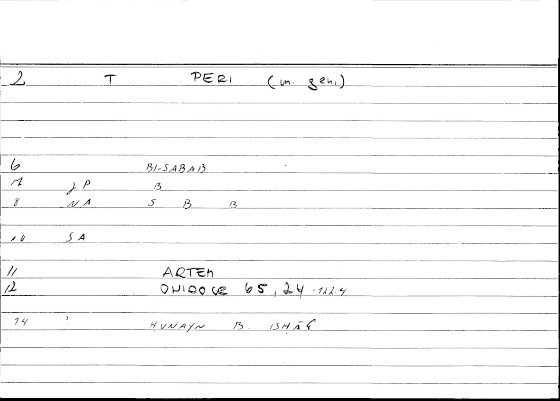 2 T PERI (m. gen.)
6 BI-SABAB
7 JP B
8 NA S B B
10 SA
11 ARTEM
12 ONIROCR 65, 24 -1224
14 HUNAYN B. ISHĀQ